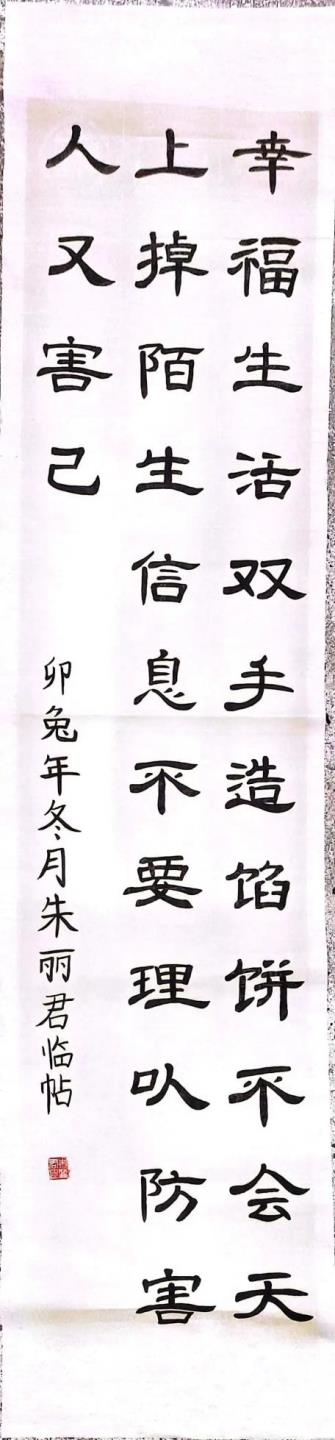 幸福生活双手造馅饼不会天
上掉陌生信息不要理以防害
人又害己
卯兔年冬月朱丽君临帖